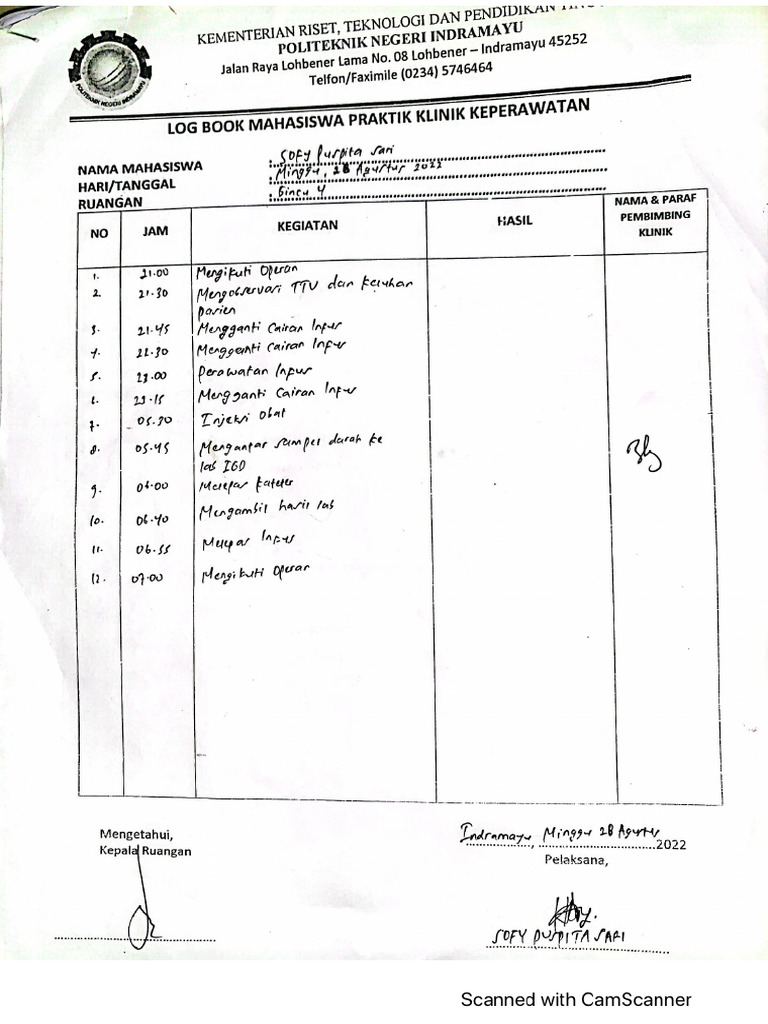 KEMENTERIAN RISET, TEKNOLOGI DAN PENDIDIKAN
POLITEKNIK NEGERI INDRAMAYU
Jalan Raya Lohbener Lama No. 08 Lohbener – Indramayu 45252
Telfon/Faximile (0234) 5746464
POLITEKNIK NEGERI INDRAMAYU
LOG BOOK MAHASISWA PRAKTIK KLINIK KEPERAWATAN
NAMA MAHASISWA : SOFY Puspita Sari
HARI/TANGGAL : Minggu, 28 Agustus 2022
RUANGAN : 4
NO JAM KEGIATAN HASIL NAMA & PARAF PEMBIMBING KLINIK
1. 21.00 Mengikuti Operan
2. 21.30 Mengobservasi TTV dan keluhan
pasien
3. 21.45 Mengganti Cairan Infus
4. 22.30 Mengganti Cairan Infus
5. 23.00 Perawatan Infus
6. 23.15 Mengganti Cairan Infus
7. 05.30 Injeksi Obat
8. 05.45 Mengantar sampel darah ke
lab IGD
9. 06.00 Melepas kateter
10. 06.40 Mengambil hasil lab
11. 06.55 Melepas Infus
12. 07.00 Mengikuti Operan
Mengetahui,
Kepala Ruangan
Indramayu, Minggu 28 Agustus 2022
Pelaksana,
SOFY PUSPITA SARI
Scanned with CamScanner